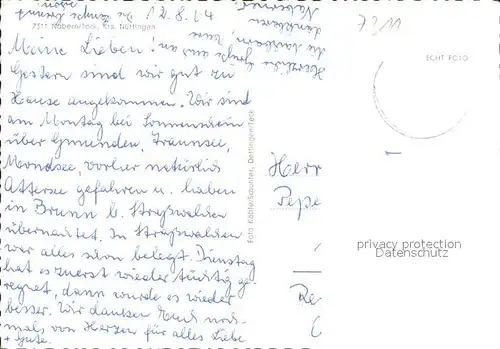 7311
7311 Nabern/Teck, Krs. Nürtingen
ECHT FOTO
Meine Lieben!
Gestern sind wir gut zu
Hause angekommen. Wir sind
am Montag bei Sonnenschein
über Gmunden, Traunsee,
Mondsee, vorher natürlich
Attersee gefahren u. haben
in Brunn b. Straßwalden
übernachtet. In Straßwalden
war alles schon belegt. Dienstag
hat es zuerst wieder tüchtig ge-
regnet, dann wurde es wieder
besser. Wir danken Euch noch-
mals von Herzen für alles Liebe
+ Gute.
Herzliche Grüße
Foto Kabtle/Squarter, Dettingen/Teck
Herr
Pepe
privacy protection
Datenschutz
Re